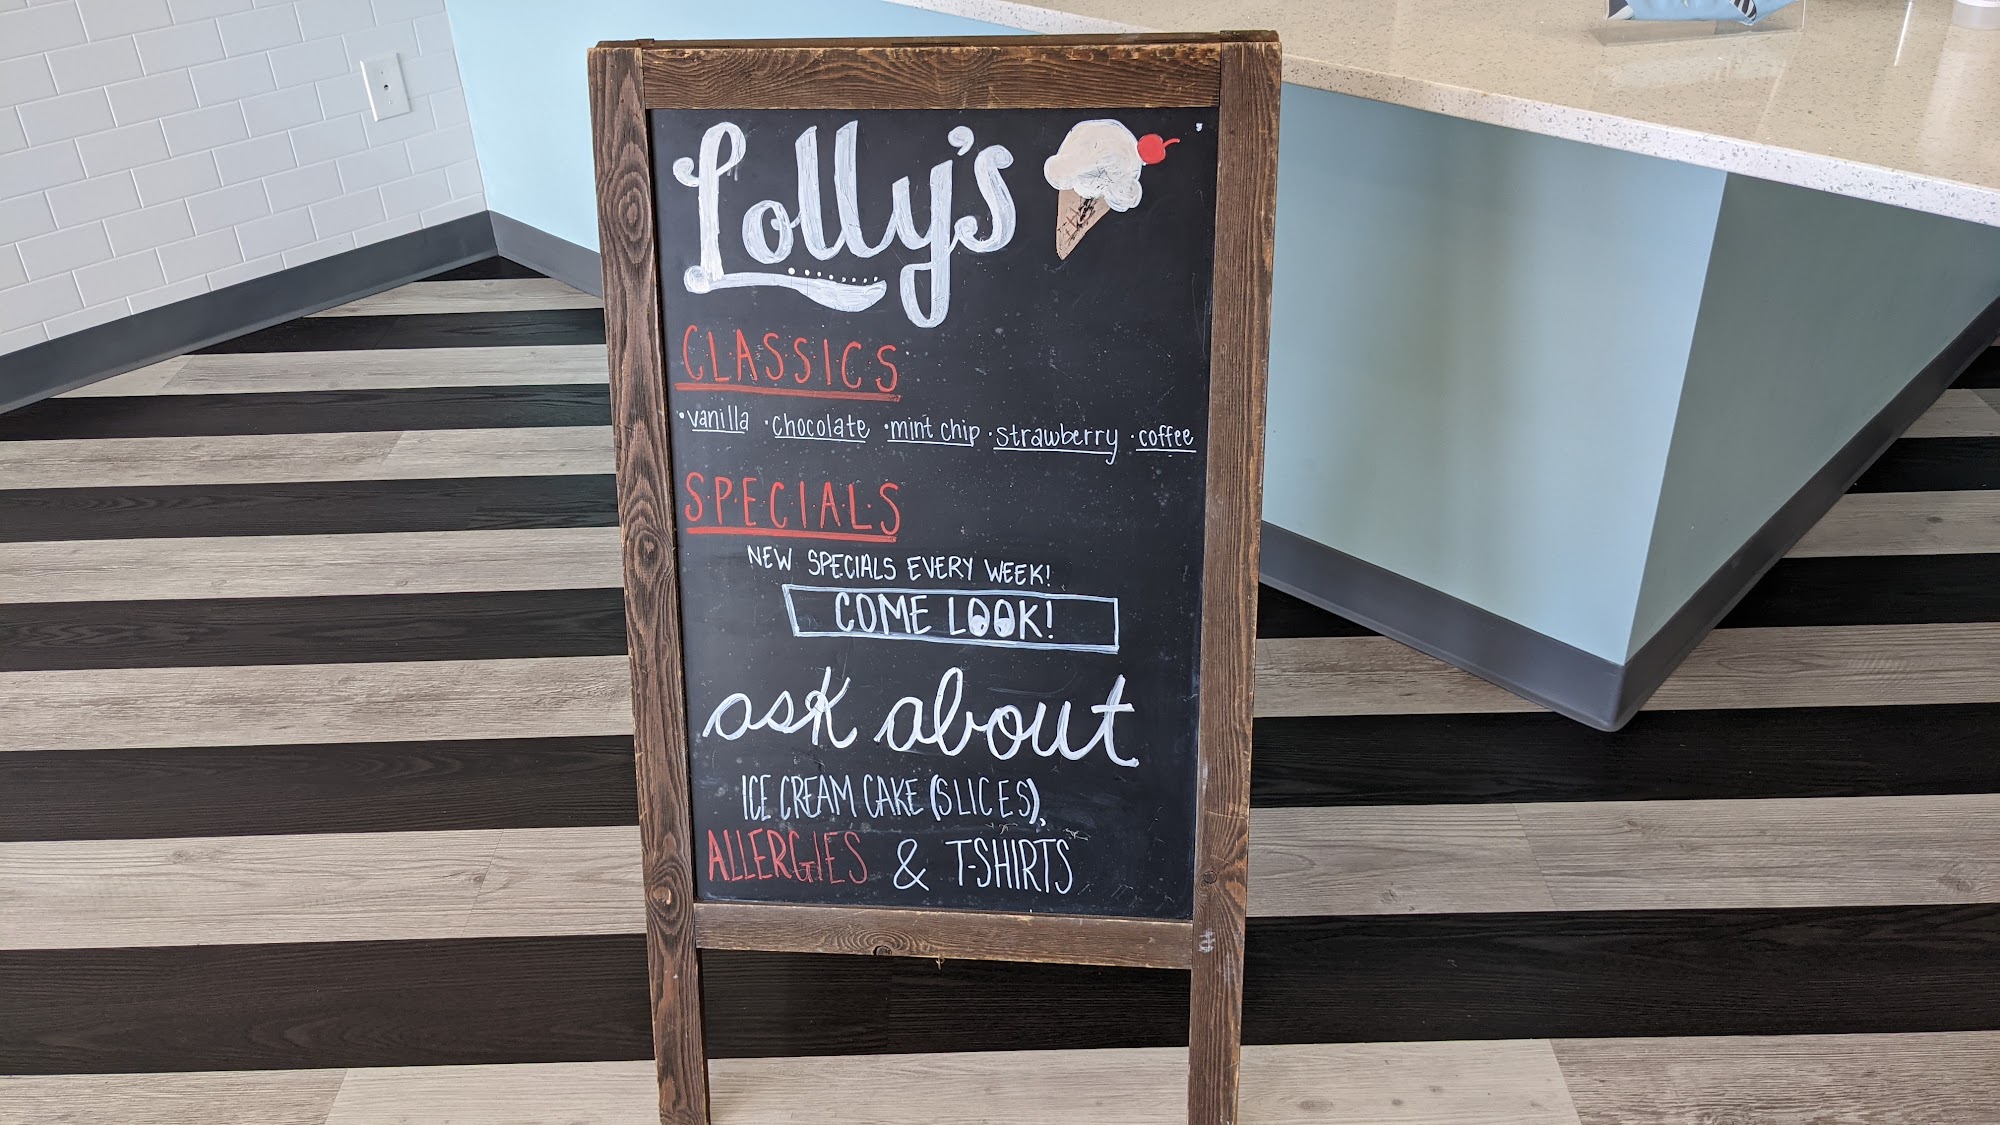 Lolly's
CLASSICS
•vanilla •chocolate •mint chip •strawberry •coffee
S·P·E·C·I·A·L·S
NEW SPECIALS EVERY WEEK!
COME LOOK!
ask about
ICE CREAM CAKE (SLICES),
ALLERGIES & T-SHIRTS